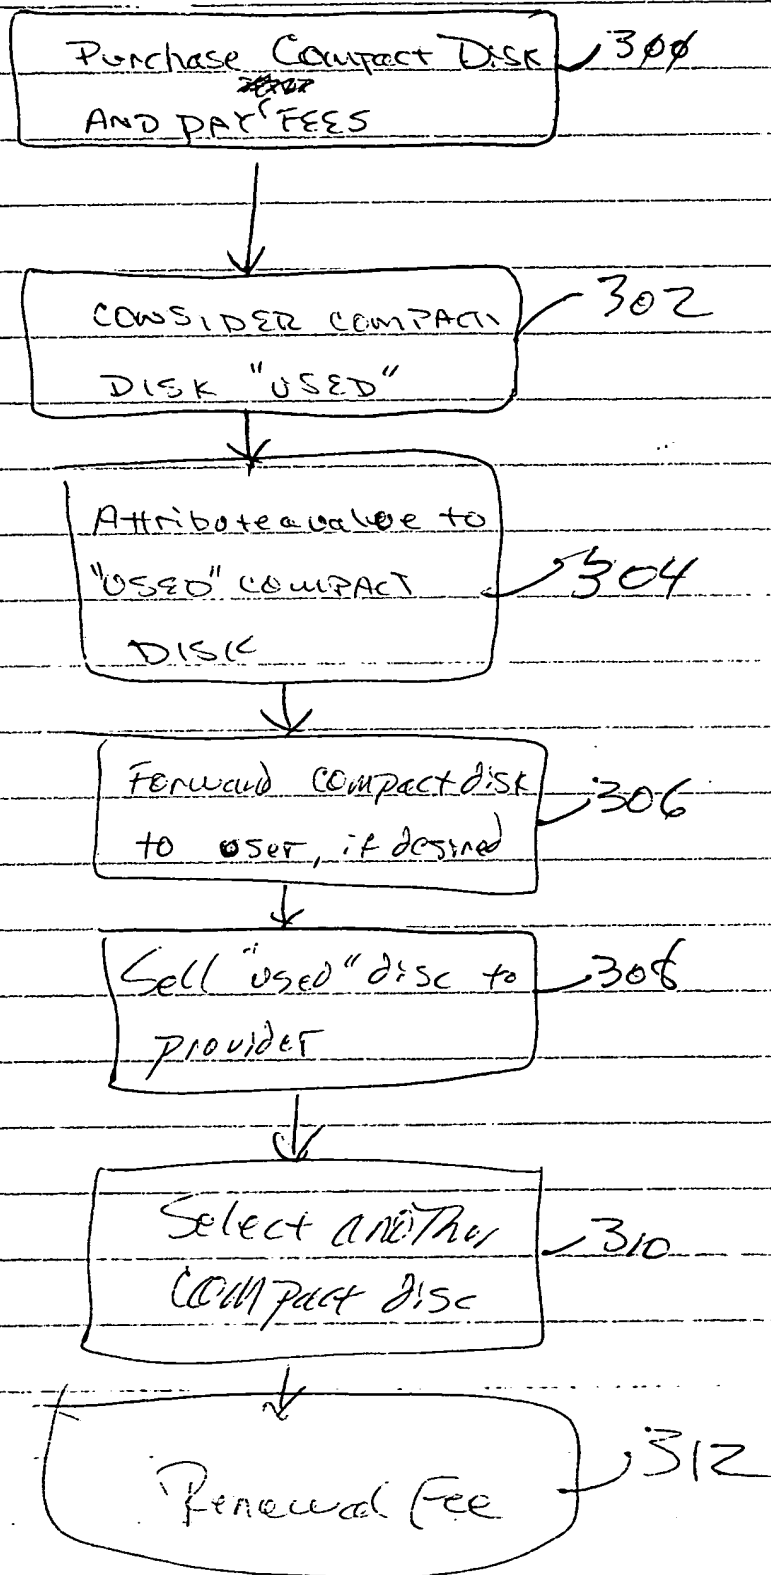 Purchase Compact Disk
AND PAY FEES
300
CONSIDER COMPACT
DISK "USED"
302
Attribute a value to
"USED" COMPACT
DISK
304
Forward compact disk
to user, if desired
306
Sell "used" disc to
provider
308
Select another
compact disc
310
Renewal Fee
312